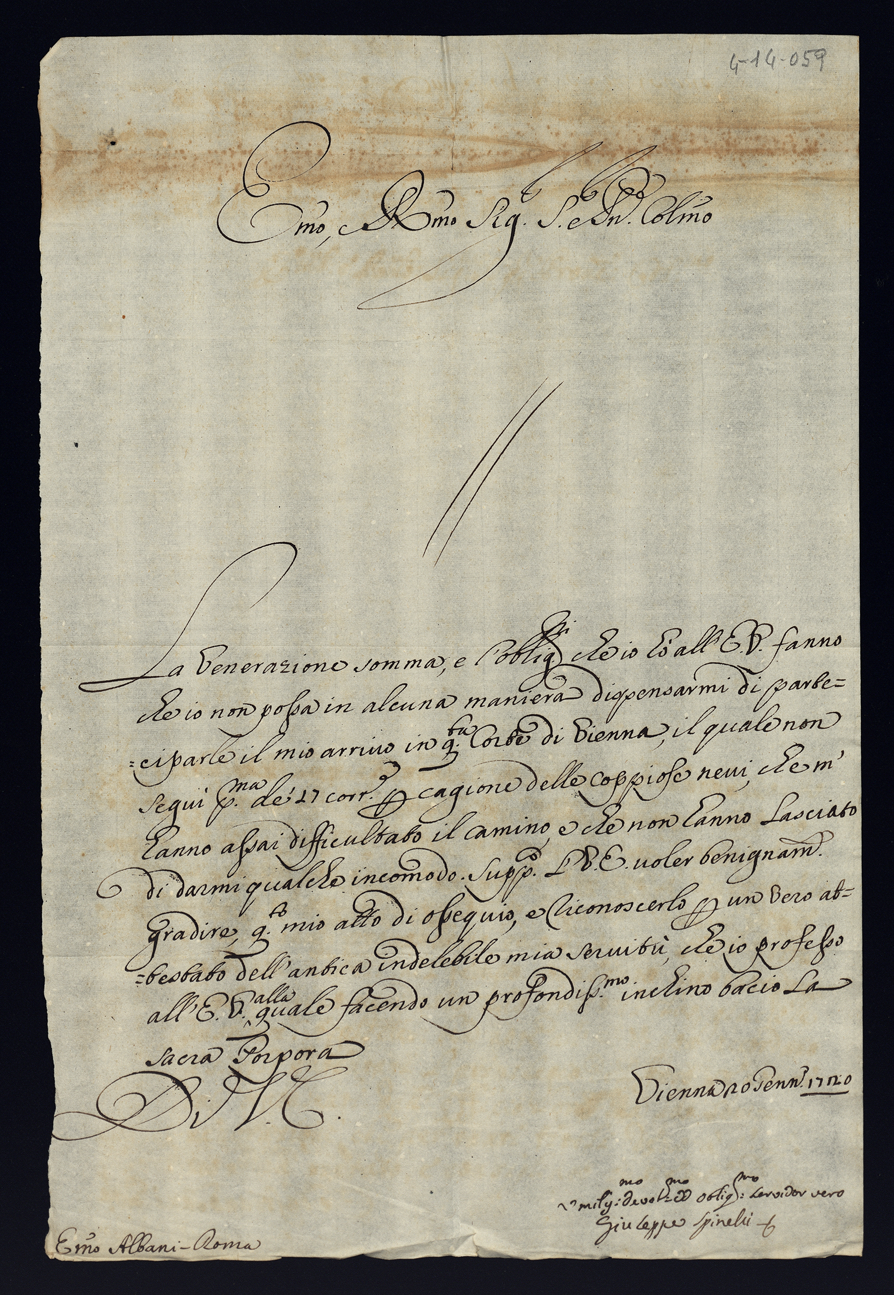 4-14-059
Emo, e Rmo Sig.r S.e Pne. Colmo
La Venerazione somma, e l'obblig.ni che io hò all'E.V. fanno
che io non possa in alcuna maniera dispensarmi di parte=
=ciparle il mio arrivo in q.ta Corte di Vienna, il quale non
seguì p.ma de' 17 corr.e p cagione delle coppiose nevi, che m'
hanno assai difficultato il camino, e che non hanno Lasciato
di darmi qualche incomodo. Supp.co L'V.E. voler benignam.
gradire, q.to mio atto di ossequio, e riconoscerlo p un vero at=
=testato dell'antica indelebile mia servitù, che io professo
all'E.V. alla quale facendo un profondiss.mo inchino bacio La
sacra Porpora
D. V. E.
Vienna 20 Genn. 1720
mo mo mo
Umilis: devot: ed obblig: servidor vero
Giuseppe Spinelli
Emo Albani-Roma